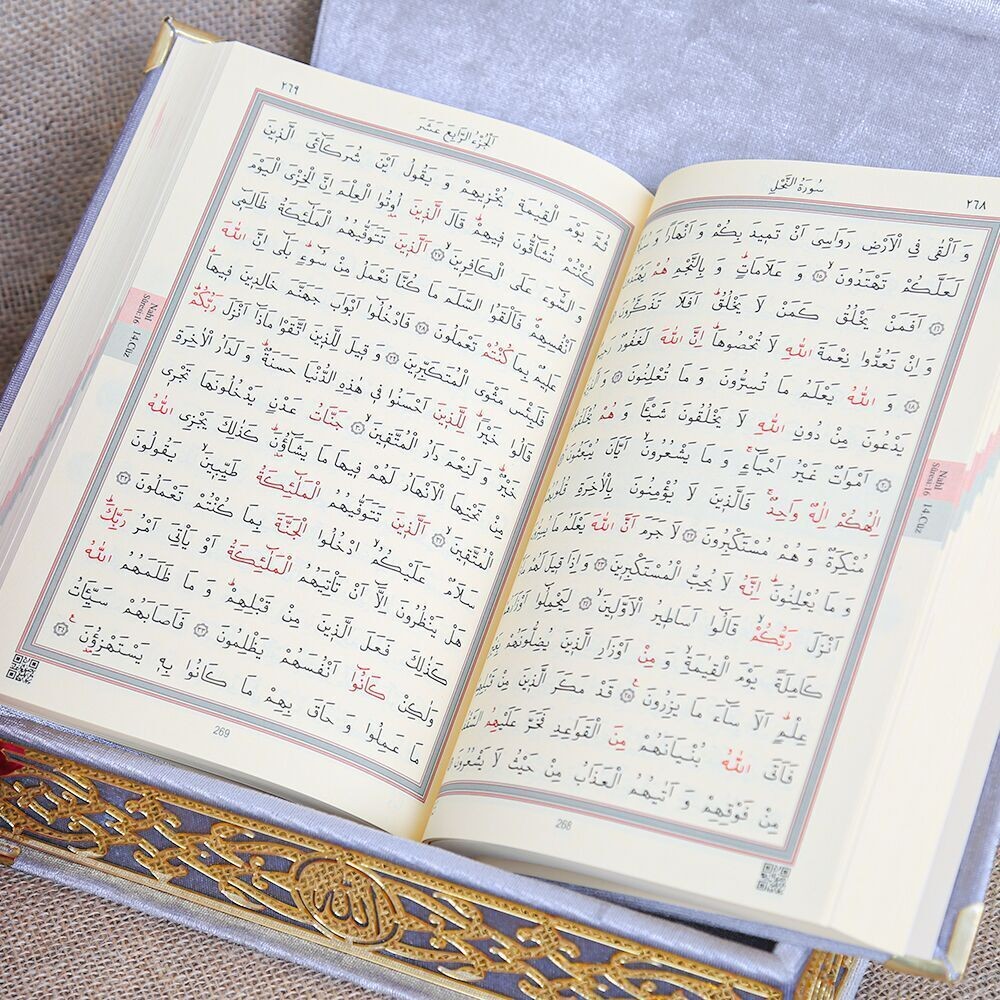 سُورَةُ النَّحْلِ
٢٦٨
وَ اَلْقٰى فِى الْاَرْضِ رَوَاسِىَ اَنْ تَمٖيدَ بِكُمْ وَ اَنْهَارًا وَ
لَعَلَّكُمْ تَهْتَدُونَۙ ﴿١٥﴾ وَ عَلَامَاتٍؕ وَ بِالنَّجْمِ هُمْ يَهْتَدُونَ
﴿١٦﴾ اَفَمَنْ يَخْلُقُ كَمَنْ لَا يَخْلُقُؕ اَفَلَا تَذَكَّرُونَ
وَ اِنْ تَعُدُّوا نِعْمَةَ اللّٰهِ لَا تُحْصُوهَاؕ اِنَّ اللّٰهَ لَغَفُورٌ رَحٖيمٌ
﴿١٨﴾ وَ اللّٰهُ يَعْلَمُ مَا تُسِرُّونَ وَ مَا تُعْلِنُونَ ﴿١٩﴾ وَ الَّذٖينَ
يَدْعُونَ مِنْ دُونِ اللّٰهِ لَا يَخْلُقُونَ شَيْئًا وَ هُمْ يُخْلَقُونَؕ
﴿٢٠﴾ اَمْوَاتٌ غَيْرُ اَحْيَاءٍۚ وَ مَا يَشْعُرُونَۙ اَيَّانَ يُبْعَثُونَ
اِلٰهُكُمْ اِلٰهٌ وَاحِدٌۚ فَالَّذٖينَ لَا يُؤْمِنُونَ بِالْاٰخِرَةِ قُلُوبُهُمْ
مُنْكِرَةٌ وَ هُمْ مُسْتَكْبِرُونَ ﴿٢٢﴾ لَا جَرَمَ اَنَّ اللّٰهَ يَعْلَمُ مَا يُسِرُّونَ
وَ مَا يُعْلِنُونَؕ اِنَّهُ لَا يُحِبُّ الْمُسْتَكْبِرٖينَ ﴿٢٣﴾ وَ اِذَا قٖيلَ لَهُمْ
اَنْزَلَ رَبُّكُمْۙ قَالُوا اَسَاطٖيرُ الْاَوَّلٖينَۙ ﴿٢٤﴾ لِيَحْمِلُوا اَوْزَارَهُمْ
كَامِلَةً يَوْمَ الْقِيٰمَةِۙ وَ مِنْ اَوْزَارِ الَّذٖينَ يُضِلُّونَهُمْ
عِلْمٍؕ اَلَا سَاءَ مَا يَزِرُونَ ﴿٢٥﴾ قَدْ مَكَرَ الَّذٖينَ مِنْ قَبْلِهِمْ
فَاَتَى اللّٰهُ بُنْيَانَهُمْ مِنَ الْقَوَاعِدِ فَخَرَّ عَلَيْهِمُ السَّقْفُ
مِنْ فَوْقِهِمْ وَ اَتٰيهُمُ الْعَذَابُ مِنْ حَيْثُ لَا يَشْعُرُونَ
268
Nahl
Sûresi:16
14. Cüz
٢٦٩
اَلْجُزْءُ الرَّابِعَ عَشَرَ
ثُمَّ يَوْمَ الْقِيٰمَةِ يُخْزٖيهِمْ وَ يَقُولُ اَيْنَ شُرَكَاءِىَ الَّذٖينَ
كُنْتُمْ تُشَاقُّونَ فٖيهِمْؕ قَالَ الَّذٖينَ اُوتُوا الْعِلْمَ اِنَّ الْخِزْىَ الْيَوْمَ
وَ السُّوءَ عَلَى الْكَافِرٖينَۙ ﴿٢٧﴾ اَلَّذٖينَ تَتَوَفّٰيهُمُ الْمَلٰئِكَةُ ظَالِمٖى
اَنْفُسِهِمْࣕ فَاَلْقَوُا السَّلَمَ مَا كُنَّا نَعْمَلُ مِنْ سُوءٍؕ بَلٰى اِنَّ اللّٰهَ
عَلٖيمٌ بِمَا كُنْتُمْ تَعْمَلُونَ ﴿٢٨﴾ فَادْخُلُوا اَبْوَابَ جَهَنَّمَ خَالِدٖينَ فٖيهَاؕ
فَلَبِئْسَ مَثْوَى الْمُتَكَبِّرٖينَ ﴿٢٩﴾ وَ قٖيلَ لِلَّذٖينَ اتَّقَوْا مَاذَا اَنْزَلَ رَبُّكُمْؕ
قَالُوا خَيْرًاؕ لِلَّذٖينَ اَحْسَنُوا فٖى هٰذِهِ الدُّنْيَا حَسَنَةٌؕ وَ لَدَارُ الْاٰخِرَةِ
خَيْرٌؕ وَ لَنِعْمَ دَارُ الْمُتَّقٖينَۙ ﴿٣٠﴾ جَنَّاتُ عَدْنٍ يَدْخُلُونَهَا تَجْرٖى
مِنْ تَحْتِهَا الْاَنْهَارُ لَهُمْ فٖيهَا مَا يَشَاؤُنَؕ كَذٰلِكَ يَجْزِى اللّٰهُ
الْمُتَّقٖينَۙ ﴿٣١﴾ اَلَّذٖينَ تَتَوَفّٰيهُمُ الْمَلٰئِكَةُ طَيِّبٖينَۙ يَقُولُونَ
سَلَامٌ عَلَيْكُمُۙ ادْخُلُوا الْجَنَّةَ بِمَا كُنْتُمْ تَعْمَلُونَ ﴿٣٢﴾
هَلْ يَنْظُرُونَ اِلَّا اَنْ تَاْتِيَهُمُ الْمَلٰئِكَةُ اَوْ يَاْتِىَ اَمْرُ رَبِّكَؕ
كَذٰلِكَ فَعَلَ الَّذٖينَ مِنْ قَبْلِهِمْؕ وَ مَا ظَلَمَهُمُ اللّٰهُ
وَلٰكِنْ كَانُوا اَنْفُسَهُمْ يَظْلِمُونَ ﴿٣٣﴾ فَاَصَابَهُمْ سَيِّپَاتُ
مَا عَمِلُوا وَ حَاقَ بِهِمْ مَا كَانُوا بِهٖ يَسْتَهْزِؤُنَ ﴿٣٤﴾
269
Nahl
Sûresi:16
14. Cüz
الله